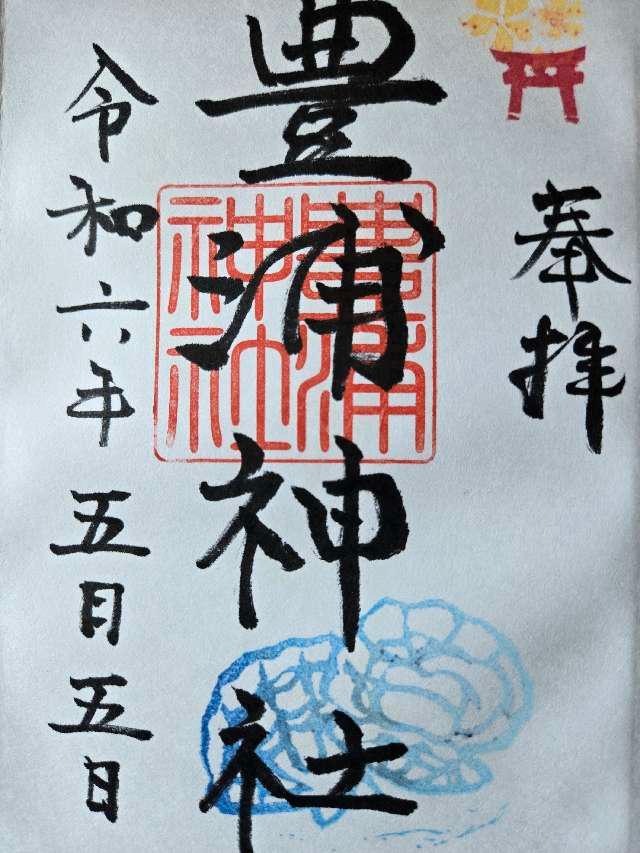 奉拝
豊浦神社
豊浦神社
令和六年五月五日